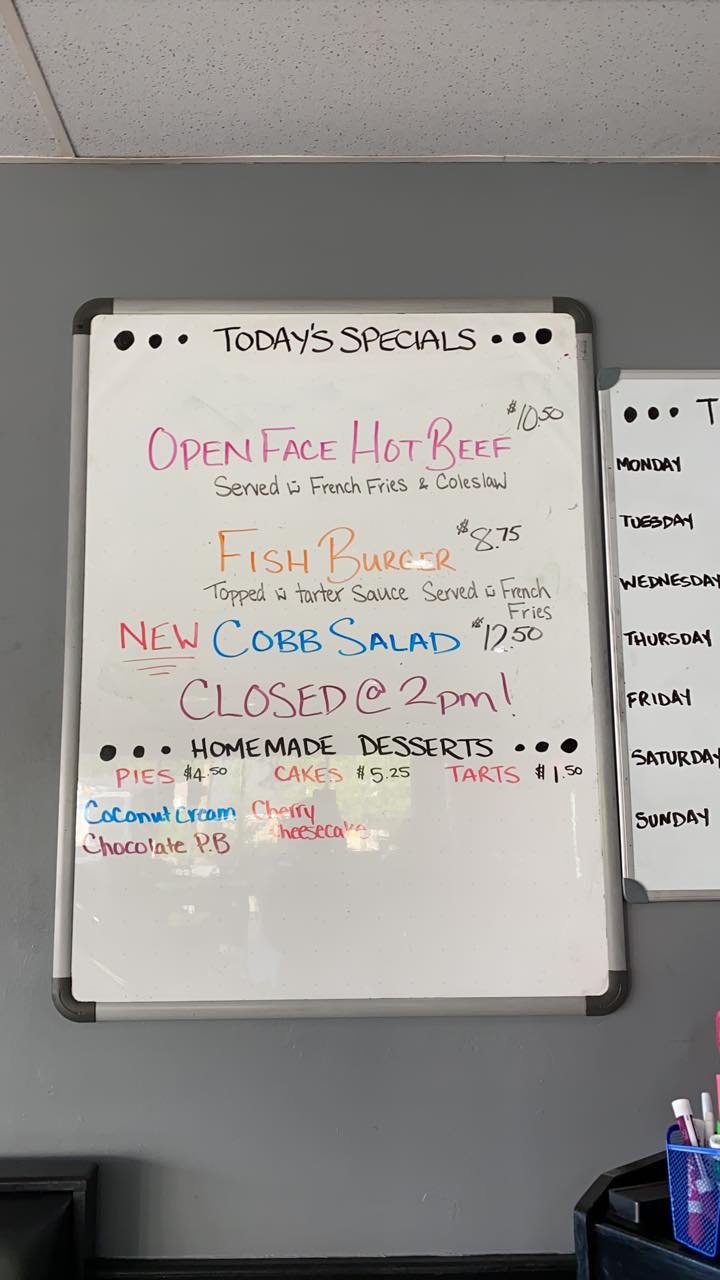 ••• TODAY'S SPECIALS •••
$10.50
OPEN FACE HOT BEEF
Served w French Fries & Coleslaw
FISH BURGER $8.75
Topped w tarter Sauce Served w French
Fries
NEW COBB SALAD $12.50
CLOSED @ 2pm!
••• HOMEMADE DESSERTS •••
PIES $4.50 CAKES $5.25 TARTS $1.50
Coconut Cream Cherry
Cheesecake
Chocolate P.B
••• T
MONDAY
TUESDAY
WEDNESDAY
THURSDAY
FRIDAY
SATURDAY
SUNDAY